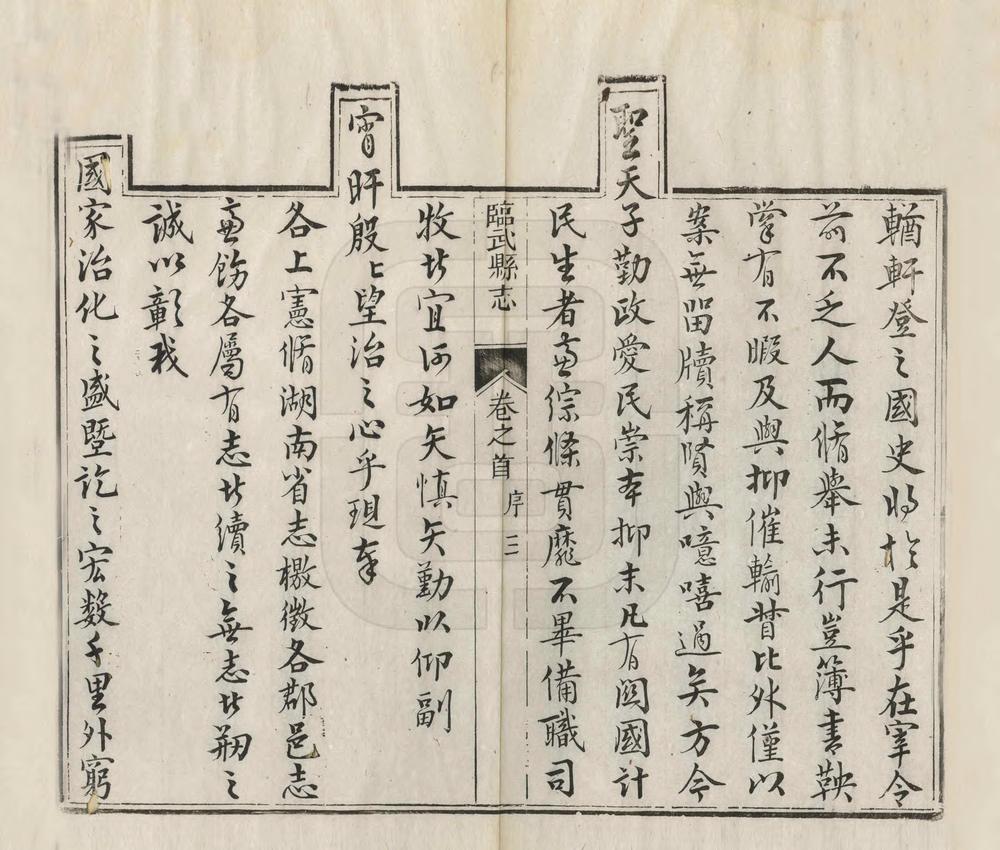 輶軒登之國史將於是乎在宰令
前不乏人而脩舉未行豈簿書鞅
掌有不暇及與抑催輸督比外僅以
案無留牘稱賢與噫嘻過矣方今
聖天子勤政愛民崇本抑末凡有關國計
民生者靡綜條貫靡不畢備職司
臨武縣志 卷之首 序 三
牧者宜何如矢慎矢勤以仰副
宵旰殷殷望治之心乎現奉
各上憲脩湖南省志檄徵各郡邑志
並飭各屬有志者續之無志者刱之
誠以彰我
國家治化之盛暨訖之宏數千里外窮